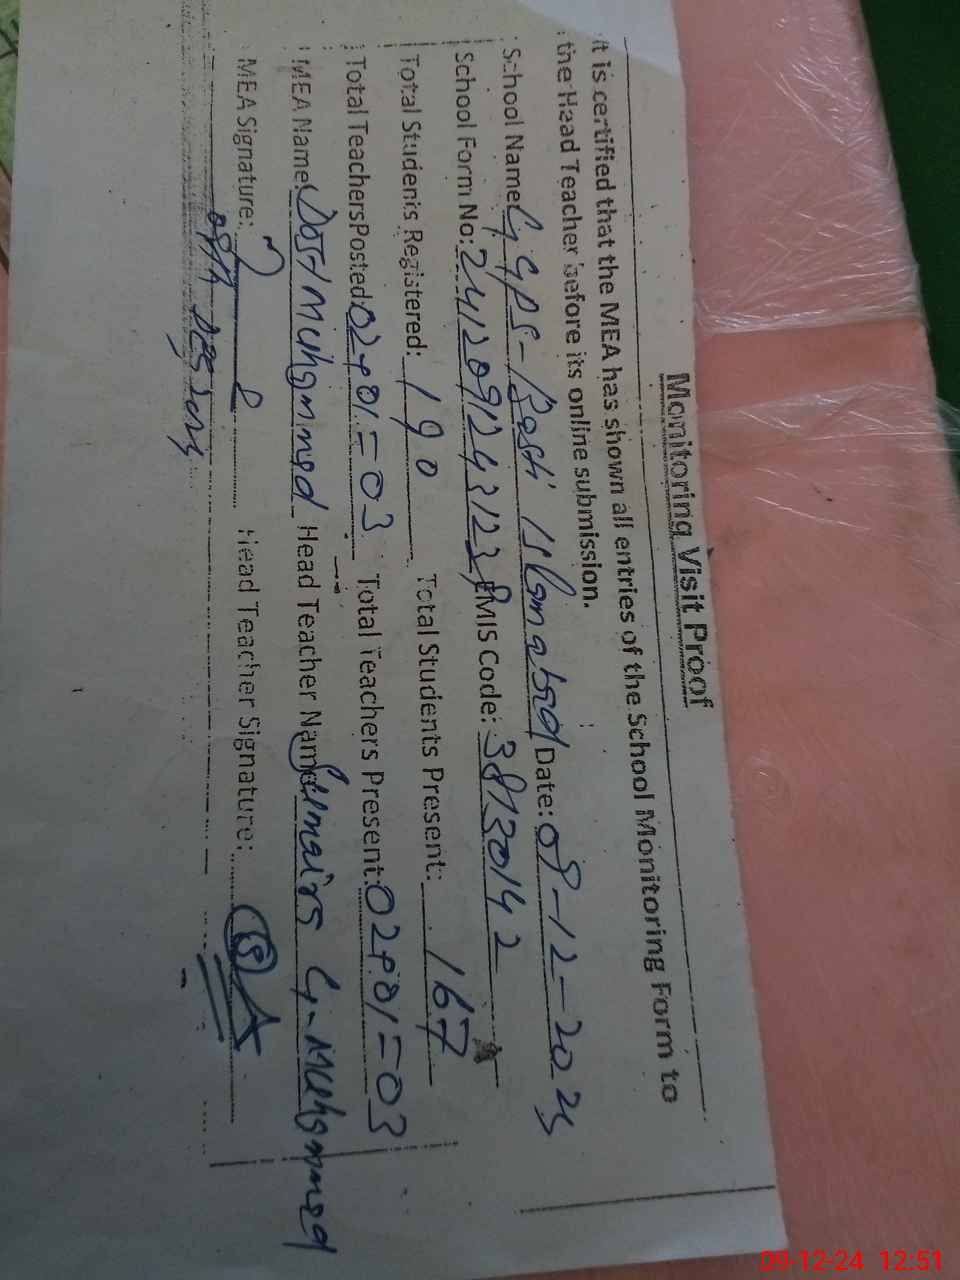 Monitoring Visit Proof
It is certified that the MEA has shown all entries of the School Monitoring Form to
the Head Teacher before its online submission.
School Name: GGPS- Basti Islamabad Date: 09-12-2025
School Form No: EMIS Code: 38130142
Total Students Registered: 190 Total Students Present: 167
Total Teachers Posted: 02+01=03 Total Teachers Present: 02+01=03
MEA Name: Dost Muhammad Head Teacher Name: Humaira G. Muhammad
MEA Signature: Head Teacher Signature:
09-12-24 12:51